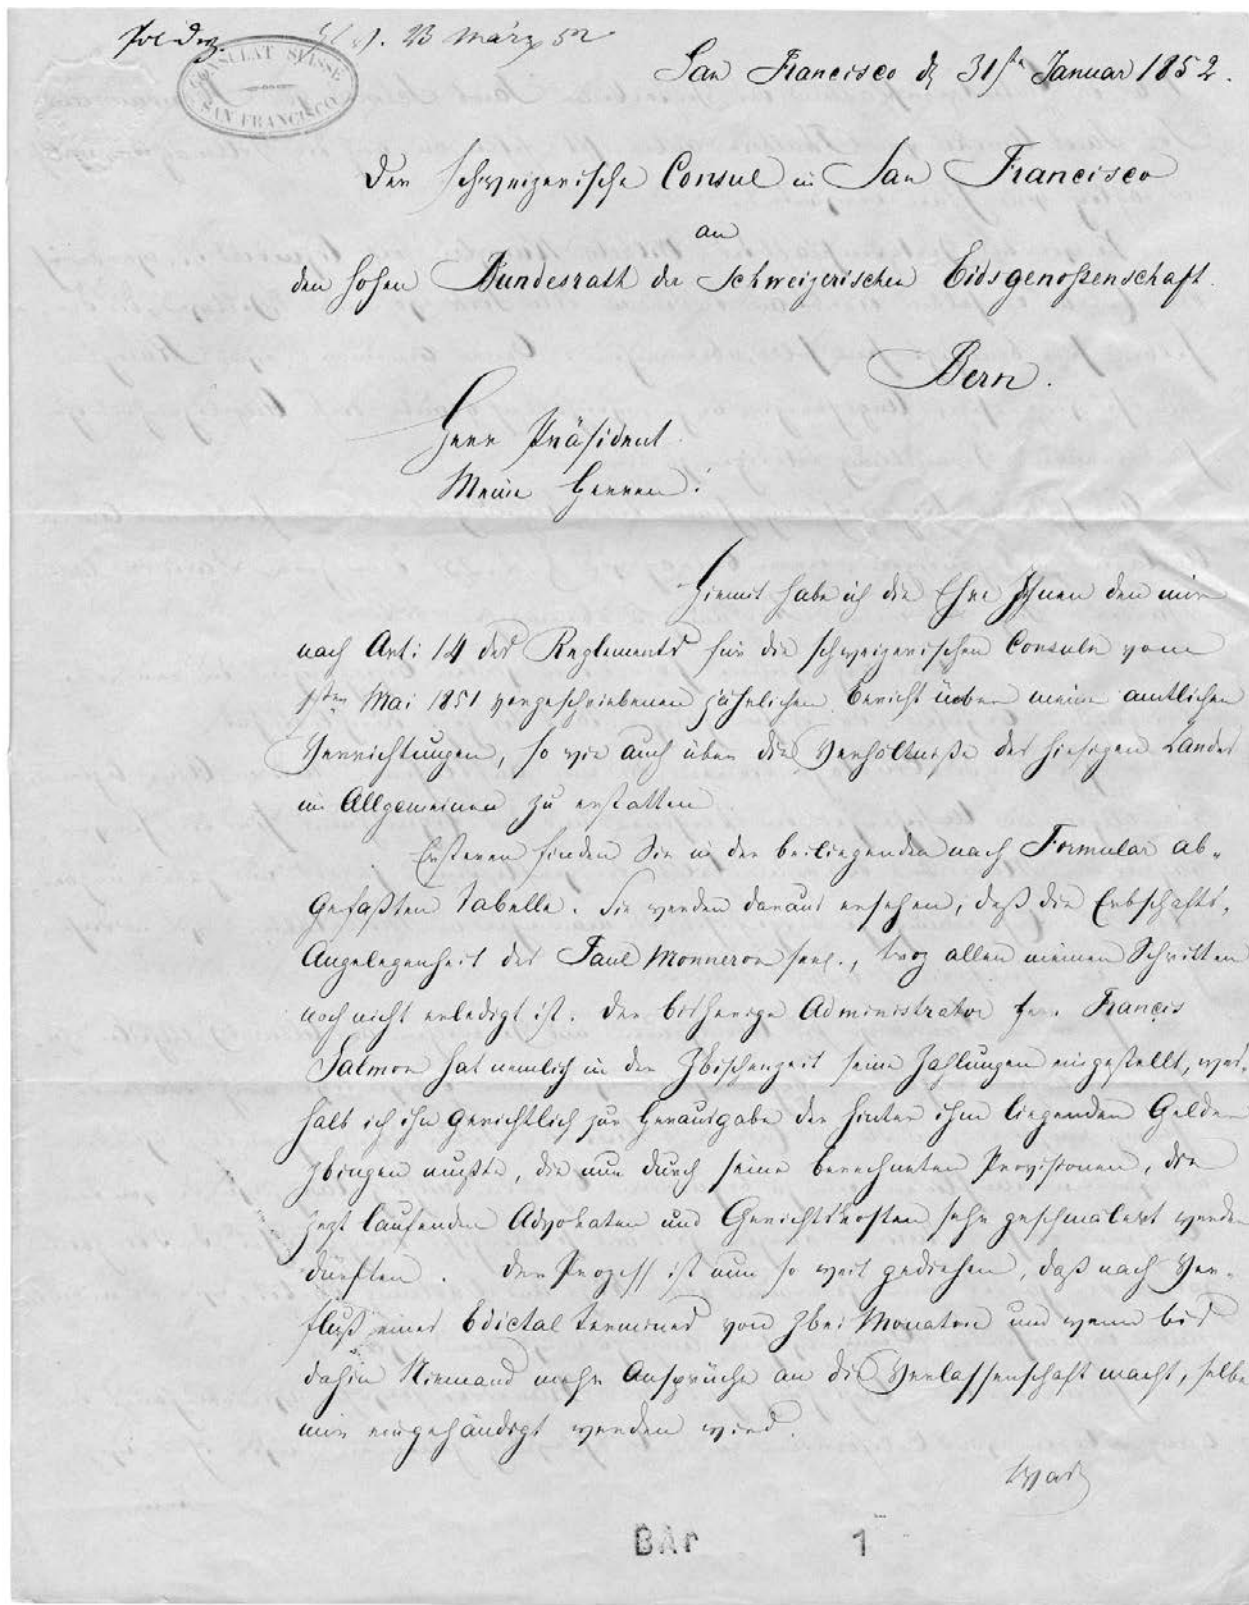 Pol. Dep.
23 März 52
CONSULAT SUISSE
SAN FRANCISCO
San Francisco d. 31sten Januar 1852.
Der schweizerische Consul in San Francisco
an
den hohen Bundesrath der Schweizerischen Eidsgenoßenschaft.
Bern.
Herr Präsident
Meine Herren!
Hiemit habe ich die Ehre Ihnen den mir
nach Art: 14 des Reglements für die schweizerischen Consuln vom
1sten Mai 1851 vorgeschriebenen jährlichen Bericht über meine amtlichen
Verrichtungen, so wie auch über die Verhältniße des hiesigen Landes
im Allgemeinen zu erstatten
Ersteren finden Sie in der beiliegenden nach Formular ab-
gefaßten Tabelle. Sie werden daraus ersehen, daß die Erbschafts-
Angelegenheit des Paul Monneron seel., troz allen meinen Schritten
noch nicht erledigt ist. Der bisherige Administrator Herr Francis
Salmon hat nemlich in der Zwischenzeit seine Zahlungen eingestellt, wes-
halb ich ihn gerichtlich zur Herausgabe der hinter ihm liegenden Gelder
zwingen mußte, die nun durch seine berechneten Provisionen, die
jezt laufenden Advokaten und Gerichtskosten sehr geschmälert werden
dürften. Der Prozess ist nun so weit gediehen, daß nach Ver-
fluß eines Edictal Termines von zwei Monaten und wenn bis
dahin Niemand mehr Ansprüche an die Verlassenschaft macht, selbe
mir eingehändigt werden wird.
Was
BAr 1